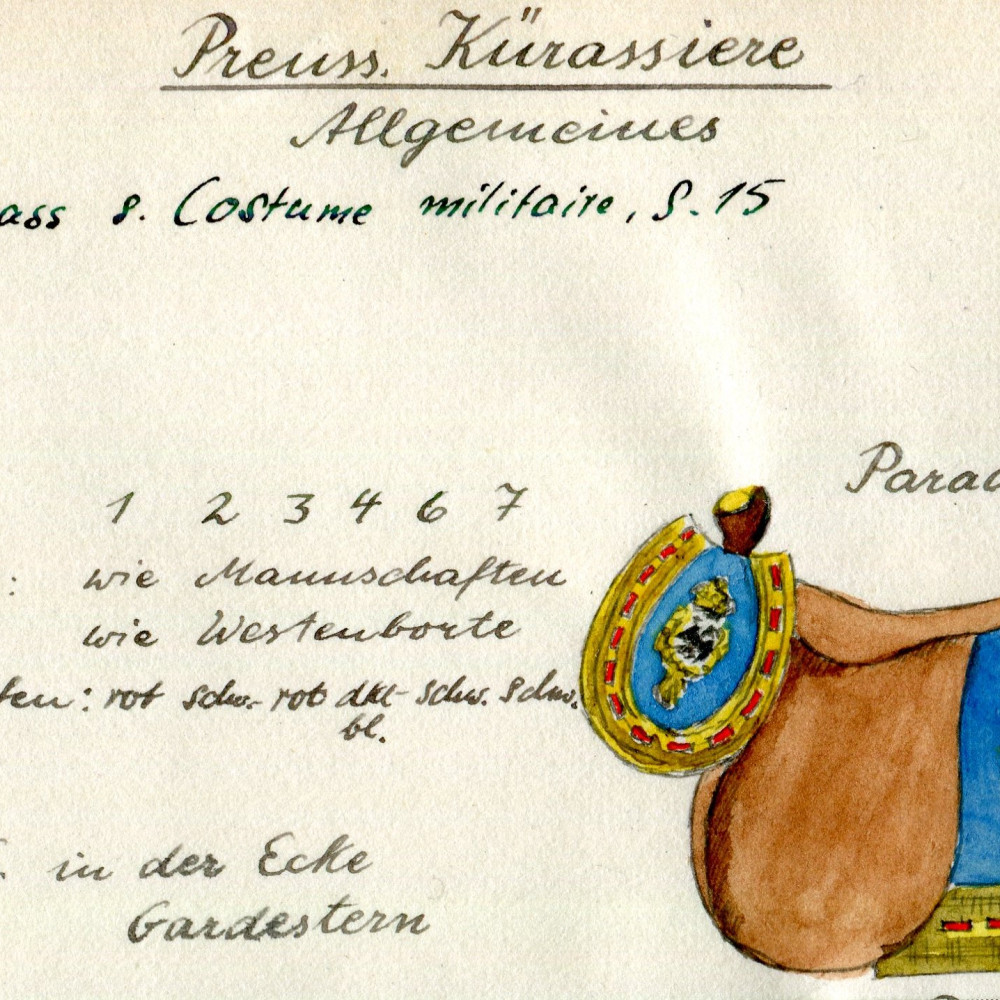 Preuss. Kürassiere
Allgemeines
ass s. Costume militaire, S. 15
Parad
1 2 3 4 6 7
: wie Mannschaften
wie Westenborte
ten: rot schw. rot dkl- schw. schw.
bl.
in der Ecke
Gardestern